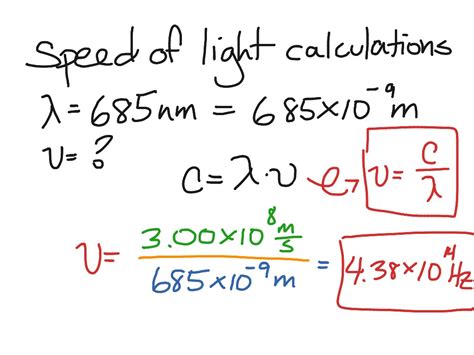 Speed of light calculations
λ = 685nm = 685×10⁻⁹ m
ν = ?
c = λ·ν → ν = c/λ
ν = 3.00×10⁸ m/s / 685×10⁻⁹ m = 4.38×10¹⁴ Hz